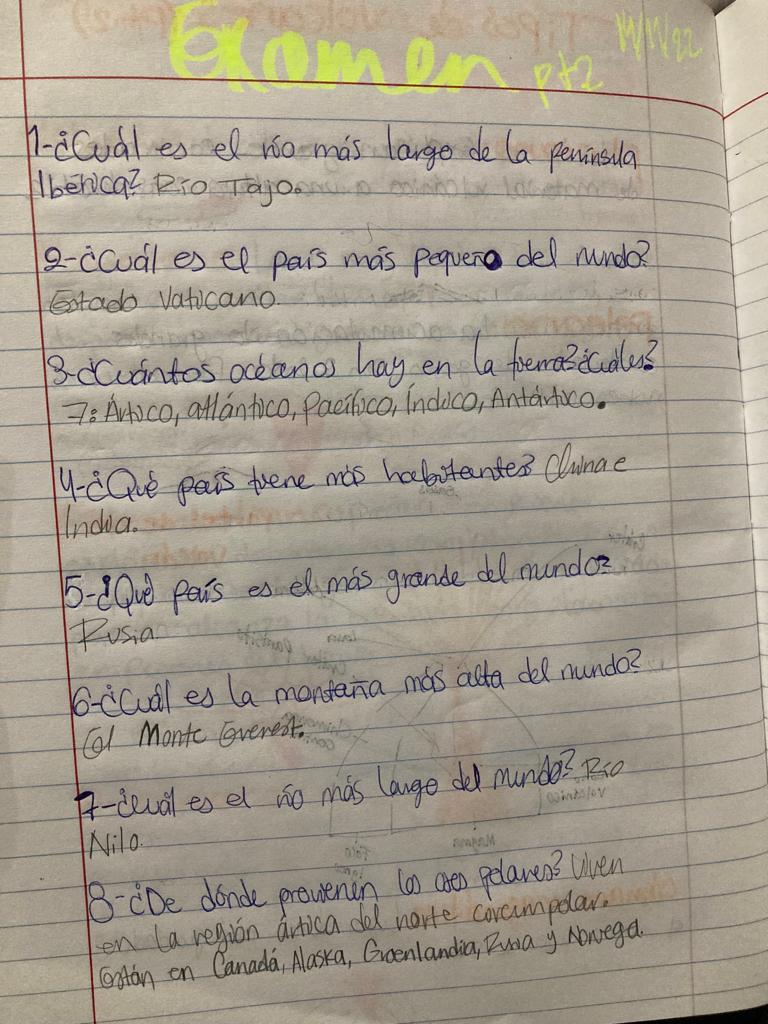 Examen pt2 14/11/22
1-¿Cuál es el río más largo de la península
Ibérica? Río Tajo.
2-¿Cuál es el país más pequeño del mundo?
Estado Vaticano
3-¿Cuántos océanos hay en la tierra? ¿Cuáles?
7: Ártico, atlántico, Pacífico, Índico, Antártico.
4-¿Qué país tiene más habitantes? China e
India.
5-¿Qué país es el más grande del mundo?
Rusia.
6-¿Cuál es la montaña más alta del mundo?
El Monte Everest.
7-¿Cuál es el río más largo del mundo? Río
Nilo.
8-¿De dónde provienen los osos polares? Viven
en la región ártica del norte circumpolar.
Están en Canadá, Alaska, Groenlandia, Rusia y Noruega.